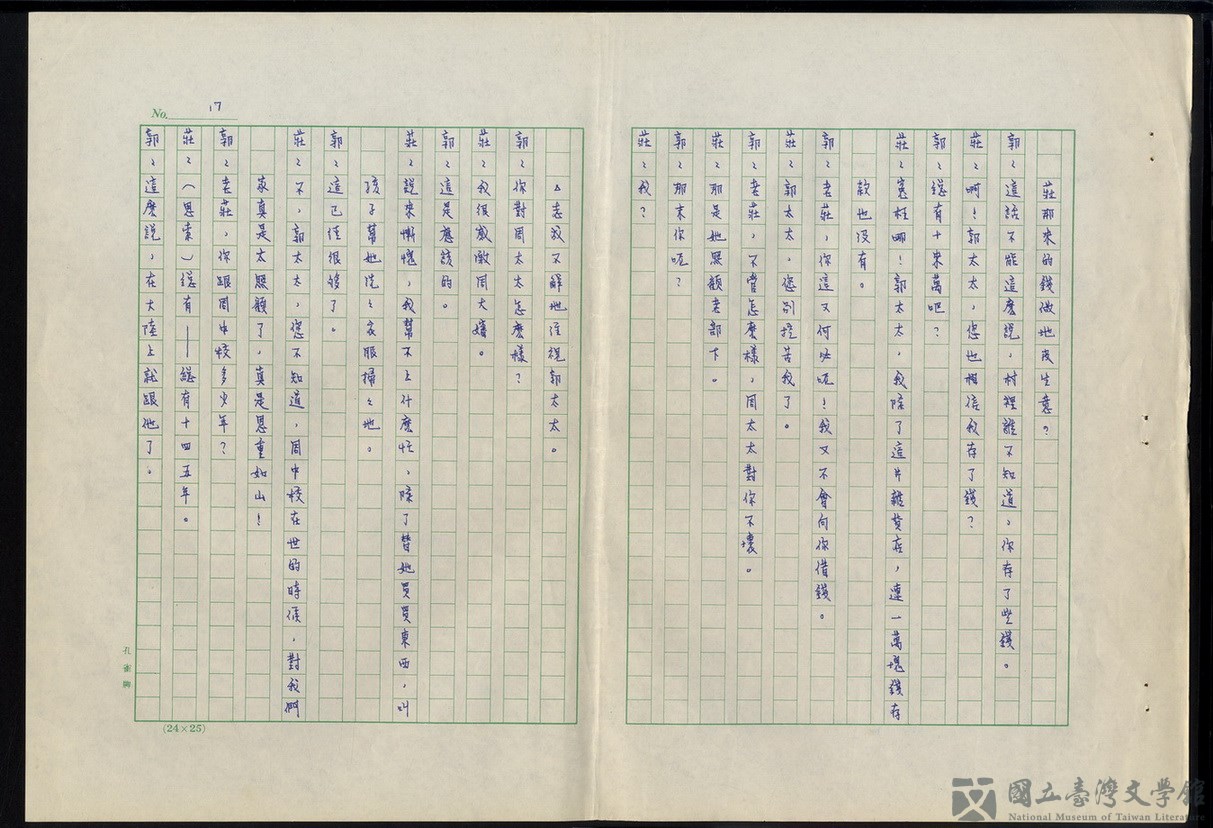 莊那来的錢做地皮生意？
郭：這話不能這麽說，村裡誰不知道，你存了些錢。
莊：啊！郭太太，您也相信我存了錢？
郭：總有十來萬吧？
莊：寃枉哪！郭太太，我除了這片雜貨店，連一萬塊錢存
款也没有。
郭：老莊，你這又何必呢！我又不會向你借錢。
莊：郭太太，您别挖苦我了。
郭：老莊，不管怎麽樣，周太太對你不壞。
莊：那是她照顧老部下。
郭：那末你呢？
莊：我？
No. 17
△志成又鮮地注視郭太太。
郭：你對周太太怎麽樣？
莊：我很感激周大嬸。
郭：這是應該的。
莊：說來慚愧，我幫不上什麽忙，除了替她買買東西，叫
孩子幫她洗洗衣服掃掃地。
郭：這已經很够了。
莊：不，郭太太，您不知道，周中校在世的時候，對我們
家真是太照顧了，真是恩重如山！
郭：老莊，你跟周中校多少年？
莊：（思索）總有——總有十四五年。
郭：這麽說，在大陸上就跟他了。
孔雀牌
(24×25)
國立臺灣文學館
National Museum of Taiwan Literature